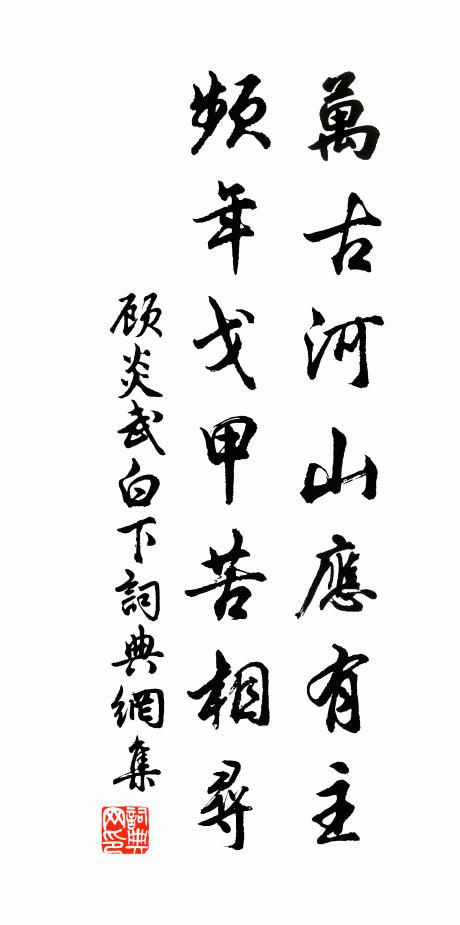 萬古河山應有主
頻年戈甲苦相尋
顾炎武白下詞典網集
詞典网印